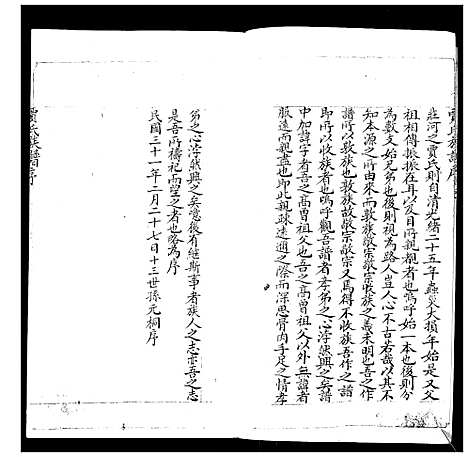 賈氏族譜序
莊河之賈氏則自清光緒二十五年蟲災大損年始是又父
祖相傳振振在耳以及目所親覩者也嗚呼始一本也後則分
為數支始兄弟也後則視為路人豈人心不古若哉以其不
知本源之所由來而敦族敬宗收族之義未明也吾之作
譜所以敦族也敦族故敬宗敬宗又焉得不收族吾作之
即所以收族者也嗚呼觀吾譜者孝弟之心浡然興之矣譜
中加諱字者高曾祖父也吾之高曾祖父以外無諱者
服遠而親盡也即此親疎遠邇之際而深思骨肉手足之情孝
弟之心浡然興之矣嗟後有繼斯事者族人之志亦吾之志
是吾所禱祀而望之者也略為序
民國三十一年二月二十七日十三世孫元桐序
賈氏族譜序